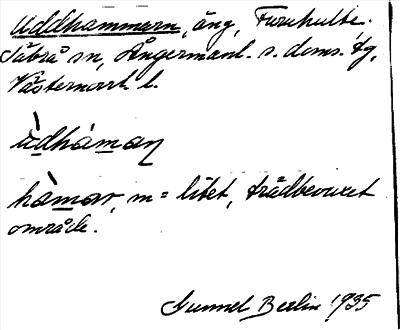 Uddhammarn, äng, Furuhult.
Säbrå sn, Ångermanl. s. doms. tg,
Västernorrl. l.
ùdhàmaɳ
hàmar, m = litet, trädbevuxet
område.
Gunnel Berlin 1935